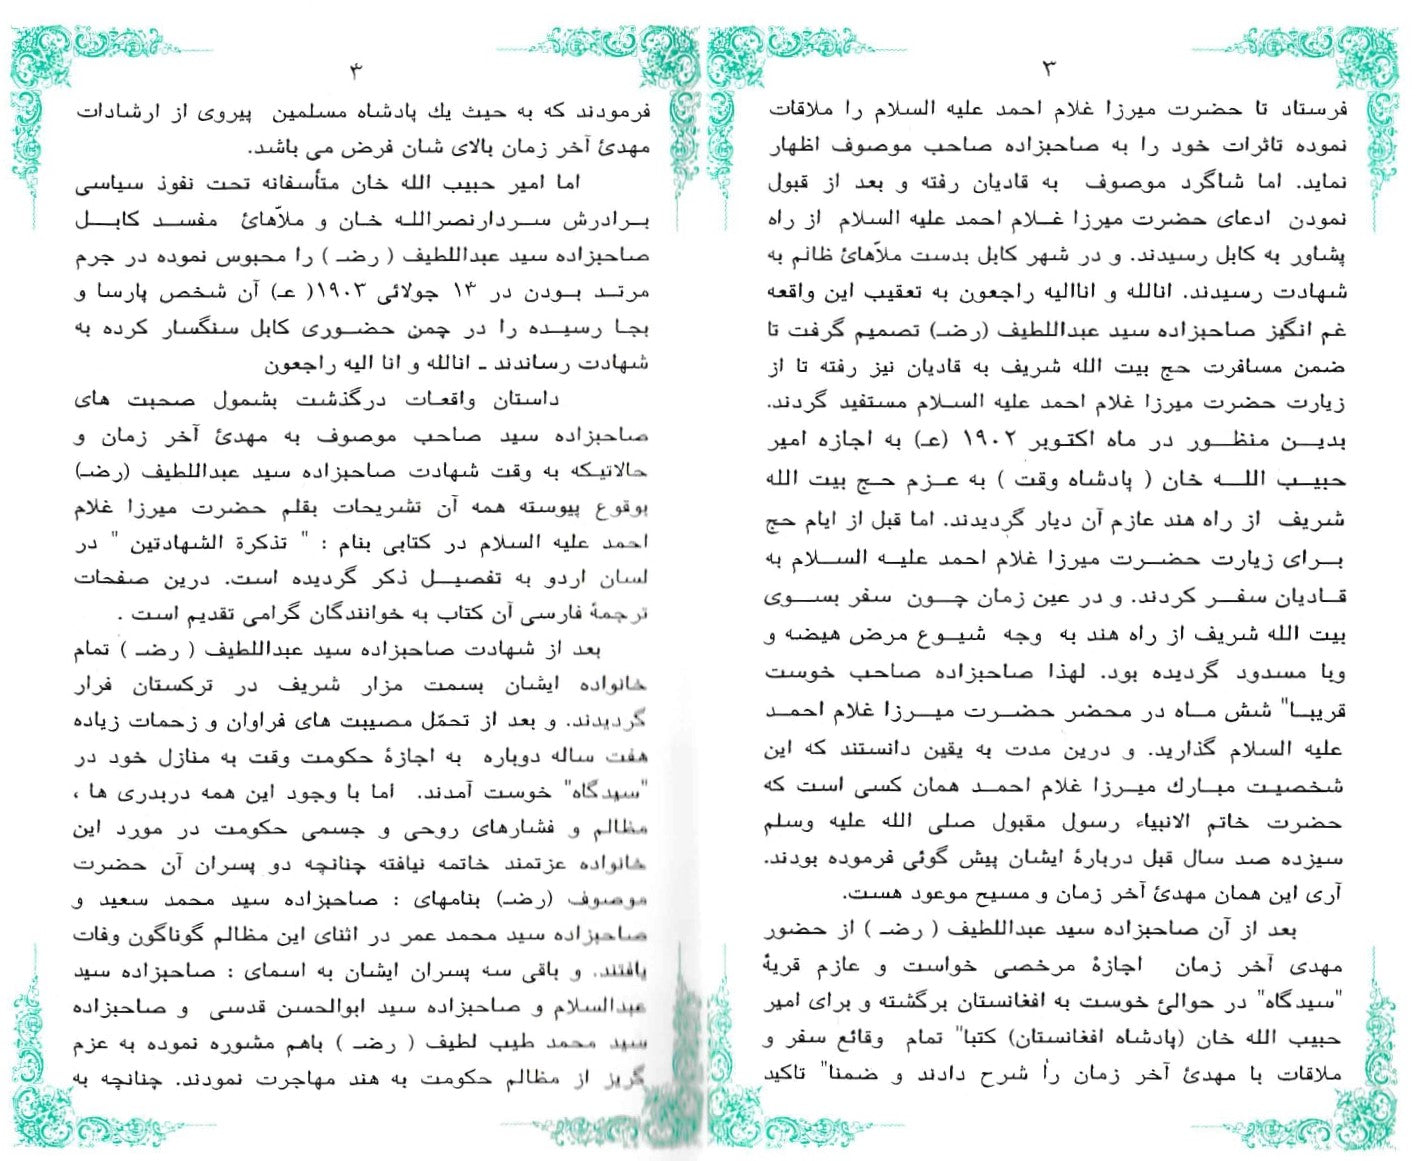 ۳
فرستاد تا حضرت میرزا غلام احمد علیه السلام را ملاقات
نموده تاثرات خود را به صاحبزاده صاحب موصوف اظهار
نماید. اما شاگرد موصوف به قادیان رفته و بعد از قبول
نمودن ادعای حضرت میرزا غلام احمد علیه السلام از راه
پشاور به کابل رسیدند. و در شهر کابل بدست ملاّهائ ظالم به
شهادت رسیدند. انالله و اناالیه راجعون به تعقیب این واقعه
غم انگیز صاحبزاده سید عبداللطیف (رضـ) تصمیم گرفت تا
ضمن مسافرت حج بیت الله شریف به قادیان نیز رفته تا از
زیارت حضرت میرزا غلام احمد علیه السلام مستفید گردند.
بدین منظور در ماه اکتوبر ۱۹۰۲ (عـ) به اجازه امیر
حبیب الله خان ( پادشاه وقت ) به عزم حج بیت الله
شریف از راه هند عازم آن دیار گردیدند. اما قبل از ایام حج
برای زیارت حضرت میرزا غلام احمد علیه السلام به
قادیان سفر کردند. و در عین زمان چون سفر بسوی
بیت الله شریف از راه هند به وجه شیوع مرض هیضه و
وبا مسدود گردیده بود. لهذا صاحبزاده صاحب خوست
قریبا" شش ماه در محضر حضرت میرزا غلام احمد
علیه السلام گذارید. و درین مدت به یقین دانستند که این
شخصیت مبارك میرزا غلام احمد همان کسی است که
حضرت خاتم الانبیاء رسول مقبول صلی الله علیه وسلم
سیزده صد سال قبل دربارۀ ایشان پیش گوئی فرموده بودند.
آری این همان مهدئ آخر زمان و مسیح موعود هست.
بعد از آن صاحبزاده سید عبداللطیف ( رضـ ) از حضور
مهدی آخر زمان اجازۀ مرخصی خواست و عازم قریۀ
"سیدگاه" در حوالئ خوست به افغانستان برگشته و برای امیر
حبیب الله خان (پادشاه افغانستان) کتبا" تمام وقائع سفر و
ملاقات با مهدئ آخر زمان را شرح دادند و ضمنا" تاکید
۴
فرمودند که به حیث یك پادشاه مسلمین پیروی از ارشادات
مهدئ آخر زمان بالای شان فرض می باشد.
اما امیر حبیب الله خان متأسفانه تحت نفوذ سیاسی
برادرش سردارنصرالله خان و ملاّهائ مفسد کابل
صاحبزاده سید عبداللطیف ( رضـ ) را محبوس نموده در جرم
مرتد بودن در ۱۴ جولائی ۱۹۰۳( عـ) آن شخص پارسا و
بجا رسیده را در چمن حضوری کابل سنگسار کرده به
شهادت رساندند ـ انالله و انا الیه راجعون
داستان واقعات درگذشت بشمول صحبت های
صاحبزاده سید صاحب موصوف به مهدئ آخر زمان و
حالاتیکه به وقت شهادت صاحبزاده سید عبداللطیف (رضـ)
بوقوع پیوسته همه آن تشریحات بقلم حضرت میرزا غلام
احمد علیه السلام در کتابی بنام : " تذکرة الشهادتین " در
لسان اردو به تفصیل ذکر گردیده است. درین صفحات
ترجمۀ فارسی آن کتاب به خوانندگان گرامی تقدیم است .
بعد از شهادت صاحبزاده سید عبداللطیف ( رضـ ) تمام
خانواده ایشان بسمت مزار شریف در ترکستان فرار
گردیدند. و بعد از تحمّل مصیبت های فراوان و زحمات زیاده
هفت ساله دوباره به اجازۀ حکومت وقت به منازل خود در
"سیدگاه" خوست آمدند. اما با وجود این همه دربدری ها ،
مظالم و فشارهای روحی و جسمی حکومت در مورد این
خانواده عزتمند خاتمه نیافته چنانچه دو پسران آن حضرت
موصوف (رضـ) بنامهای : صاحبزاده سید محمد سعید و
صاحبزاده سید محمد عمر در اثنای این مظالم گوناگون وفات
یافتند. و باقی سه پسران ایشان به اسمای : صاحبزاده سید
عبدالسلام و صاحبزاده سید ابوالحسن قدسی و صاحبزاده
سید محمد طیب لطیف ( رضـ ) باهم مشوره نموده به عزم
گریز از مظالم حکومت به هند مهاجرت نمودند. چنانچه به